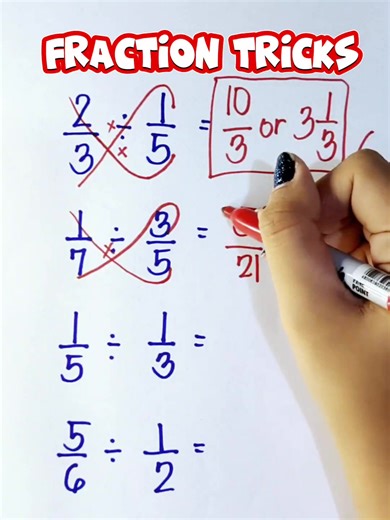 FRACTION TRICKS
2/3 ÷ 1/5 = 10/3 or 3 1/3
1/7 ÷ 3/5 = /21
1/5 ÷ 1/3 =
5/6 ÷ 1/2 =